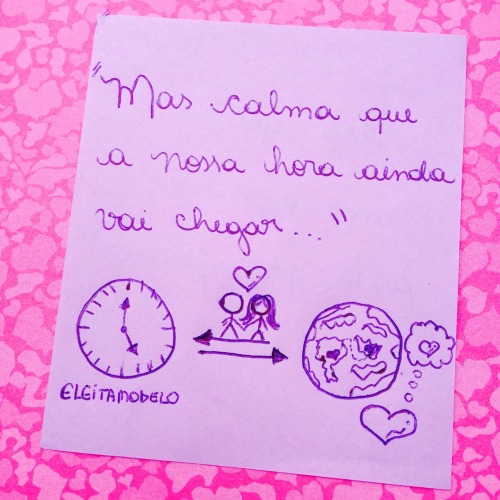 "Mas calma que
a nossa hora ainda
vai chegar..."
ELEITAMODELO